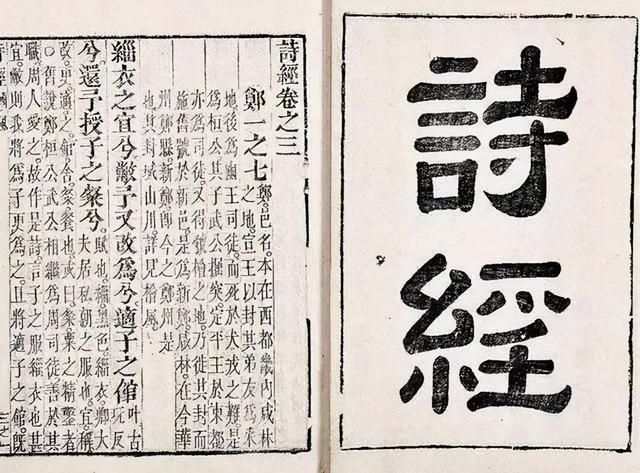 詩經
詩經卷之三
鄭一之七
鄭邑名。本在西都畿內咸林
之地。宣王以封其弟友為采
地後為幽王司徒。而死於犬戎之難。是
為桓公其子武公掘突定平王於東都
亦為司徒又得虢檜之地。乃徙其封而
施舊號於新邑。是為新鄭。咸林在今華
州鄭縣新鄭即今之鄭州是
也其封域山川詳見檜風
緇衣之宜兮敝予又改為兮適子之館叶古玩反
兮。還予授子之粲兮。賦也。緇黑色。緇衣卿大
夫居私朝之服也。宜稱
改。更。適之。館。舍。粲餐也。或曰粲粟之精鑿者
○舊說鄭桓公武公相繼為周司徒善於其
職。周人愛之。故作是詩。言子之服緇衣也甚
宜。敝則我將為子更為之。且將適子之館。既